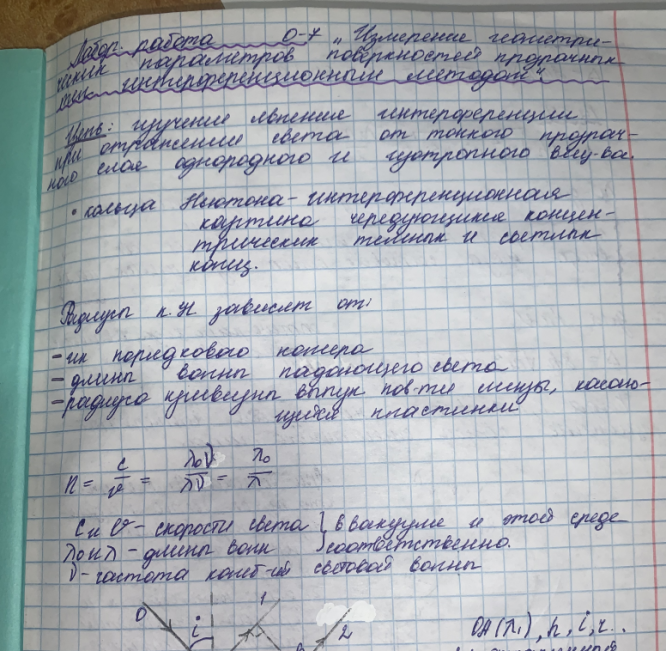 Лабор. работа О-7 „Измерение геометри-
ческих параметров поверхностей прозрачных
линз интерференционным методом"
Цель: изучение явление интерференции
при отражении света от тонкого прозрач-
ного слоя однородного и изотропного вещ-ва.
• кольца Ньютона - интерференционная
картина чередующихся концен-
трических темных и светлых
колец.
Радиусы к. Н. зависят от:
- их порядкового номера
- длины волны падающего света
- радиуса кривизны выпук пов-ти линзы, касаю-
щихся пластинки
n = c/v = λ₀ν/λν = λ₀/λ
c и v - скорости света } в вакууме и этой среде
λ₀ и λ - длины волн } соответственно.
ν - частота колеб-ий световой волны
0 i 1 2 OA(λ₁), n, i, r..